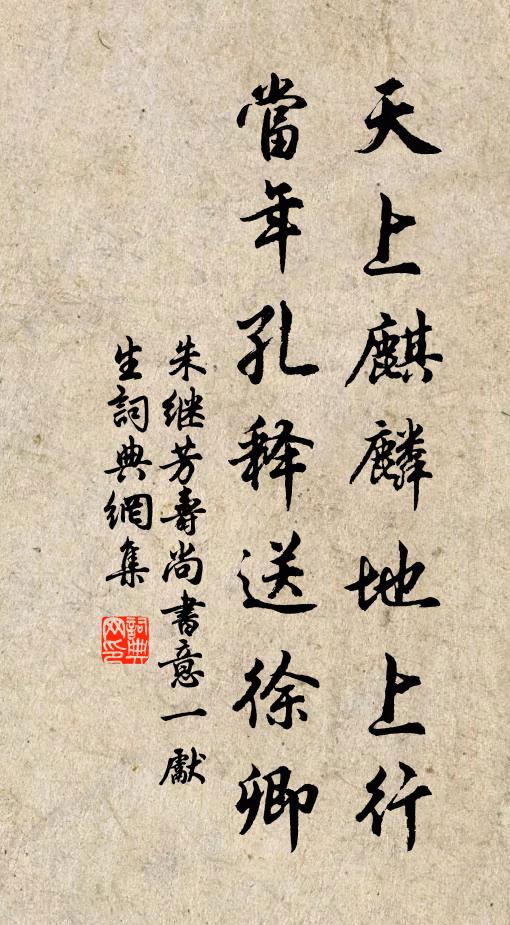 天上麒麟地上行
當年孔释送徐卿
朱继芳壽尚書意一獻
生詞典網集
詞典網印